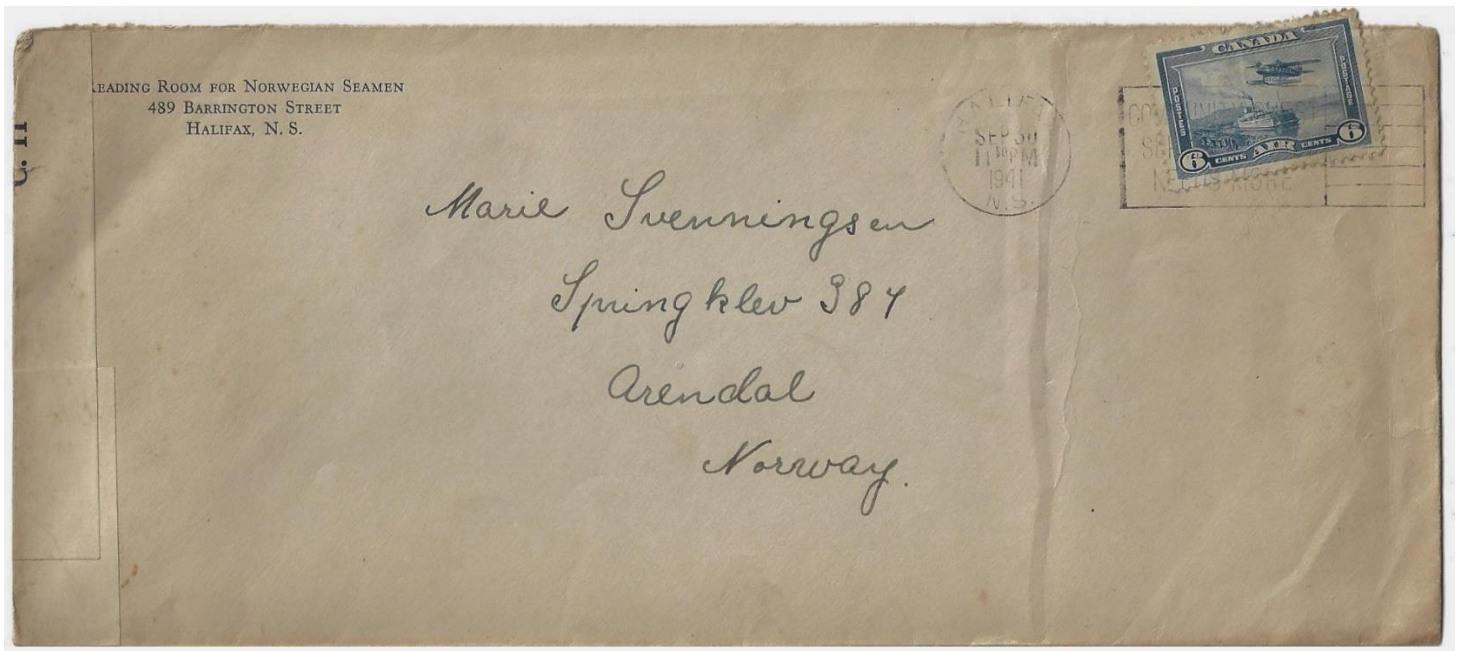 READING ROOM FOR NORWEGIAN SEAMEN
489 BARRINGTON STREET
HALIFAX, N. S.
C. 11
HALIFAX
SEP 30
11 30 PM
1941
N.S.
NEEDS MORE
CANADA
POSTES
POSTAGE
6 CENTS AIR CENTS 6
Marie Svenningsen
Springklev 384
Arendal
Norway.